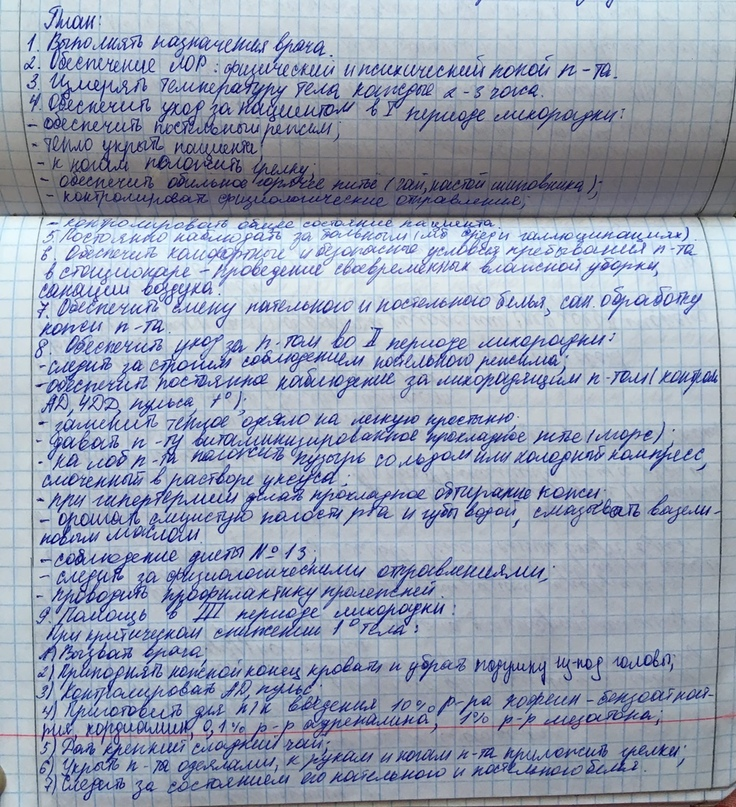 План:
1. Выполнять назначения врача.
2. Обеспечение ЛОР: физический и психический покой п-та.
3. Измерять температуру тела каждые 2-3 часа.
4. Обеспечить уход за пациентом в I периоде лихорадки:
- обеспечить постельный режим;
- тепло укрыть пациента;
- к ногам положить грелку;
- обеспечить обильное горячее питьё (чай, настой шиповника);
- контролировать физиологические отправления;
- контролировать общее состояние пациента
5. Постоянно наблюдать за больным (при бреде и галлюцинациях)
6. Обеспечить комфортное и безопасное условия пребывания п-та
в стационаре - проведение своевременных влажной уборки,
санации воздуха
7. Обеспечить смену нательного и постельного белья, сан. обработку
кожи п-та.
8. Обеспечить уход за п-том во II периоде лихорадки:
- следить за строгим соблюдением постельного режима;
- обеспечить постоянное наблюдение за лихорадящим п-том (контроль
АД, ЧДД, пульса, t°);
- заменить тёплое одеяло на легкую простыню;
- давать п-ту витаминизированное прохладное питьё (морс);
- на лоб п-та положить пузырь со льдом или холодный компресс,
смоченный в растворе уксуса.
- при гипертермии делать прохладное обтирание кожи.
- орошать слизистую полости рта и губы водой, смазывать вазели-
новым маслом
- соблюдение диеты №13.
- следить за физиологическими отправлениями;
- проводить профилактику пролежней.
9. Помощь в III периоде лихорадки:
При критическом снижении t° тела:
1) Вызвать врача
2) Приподнять ножной конец кровати и убрать подушку из-под головы;
3) Контролировать АД, пульс
4) Приготовить для п/к введения 10% р-ра кофеин-бензоат нат-
рия, кордиамин, 0,1% р-р адреналина, 1% р-р мезатона;
5) Дать крепкий сладкий чай;
6) Укрыть п-та одеялами, к рукам и ногам п-та приложить грелки;
7) Следить за состоянием его нательного и постельного белья.